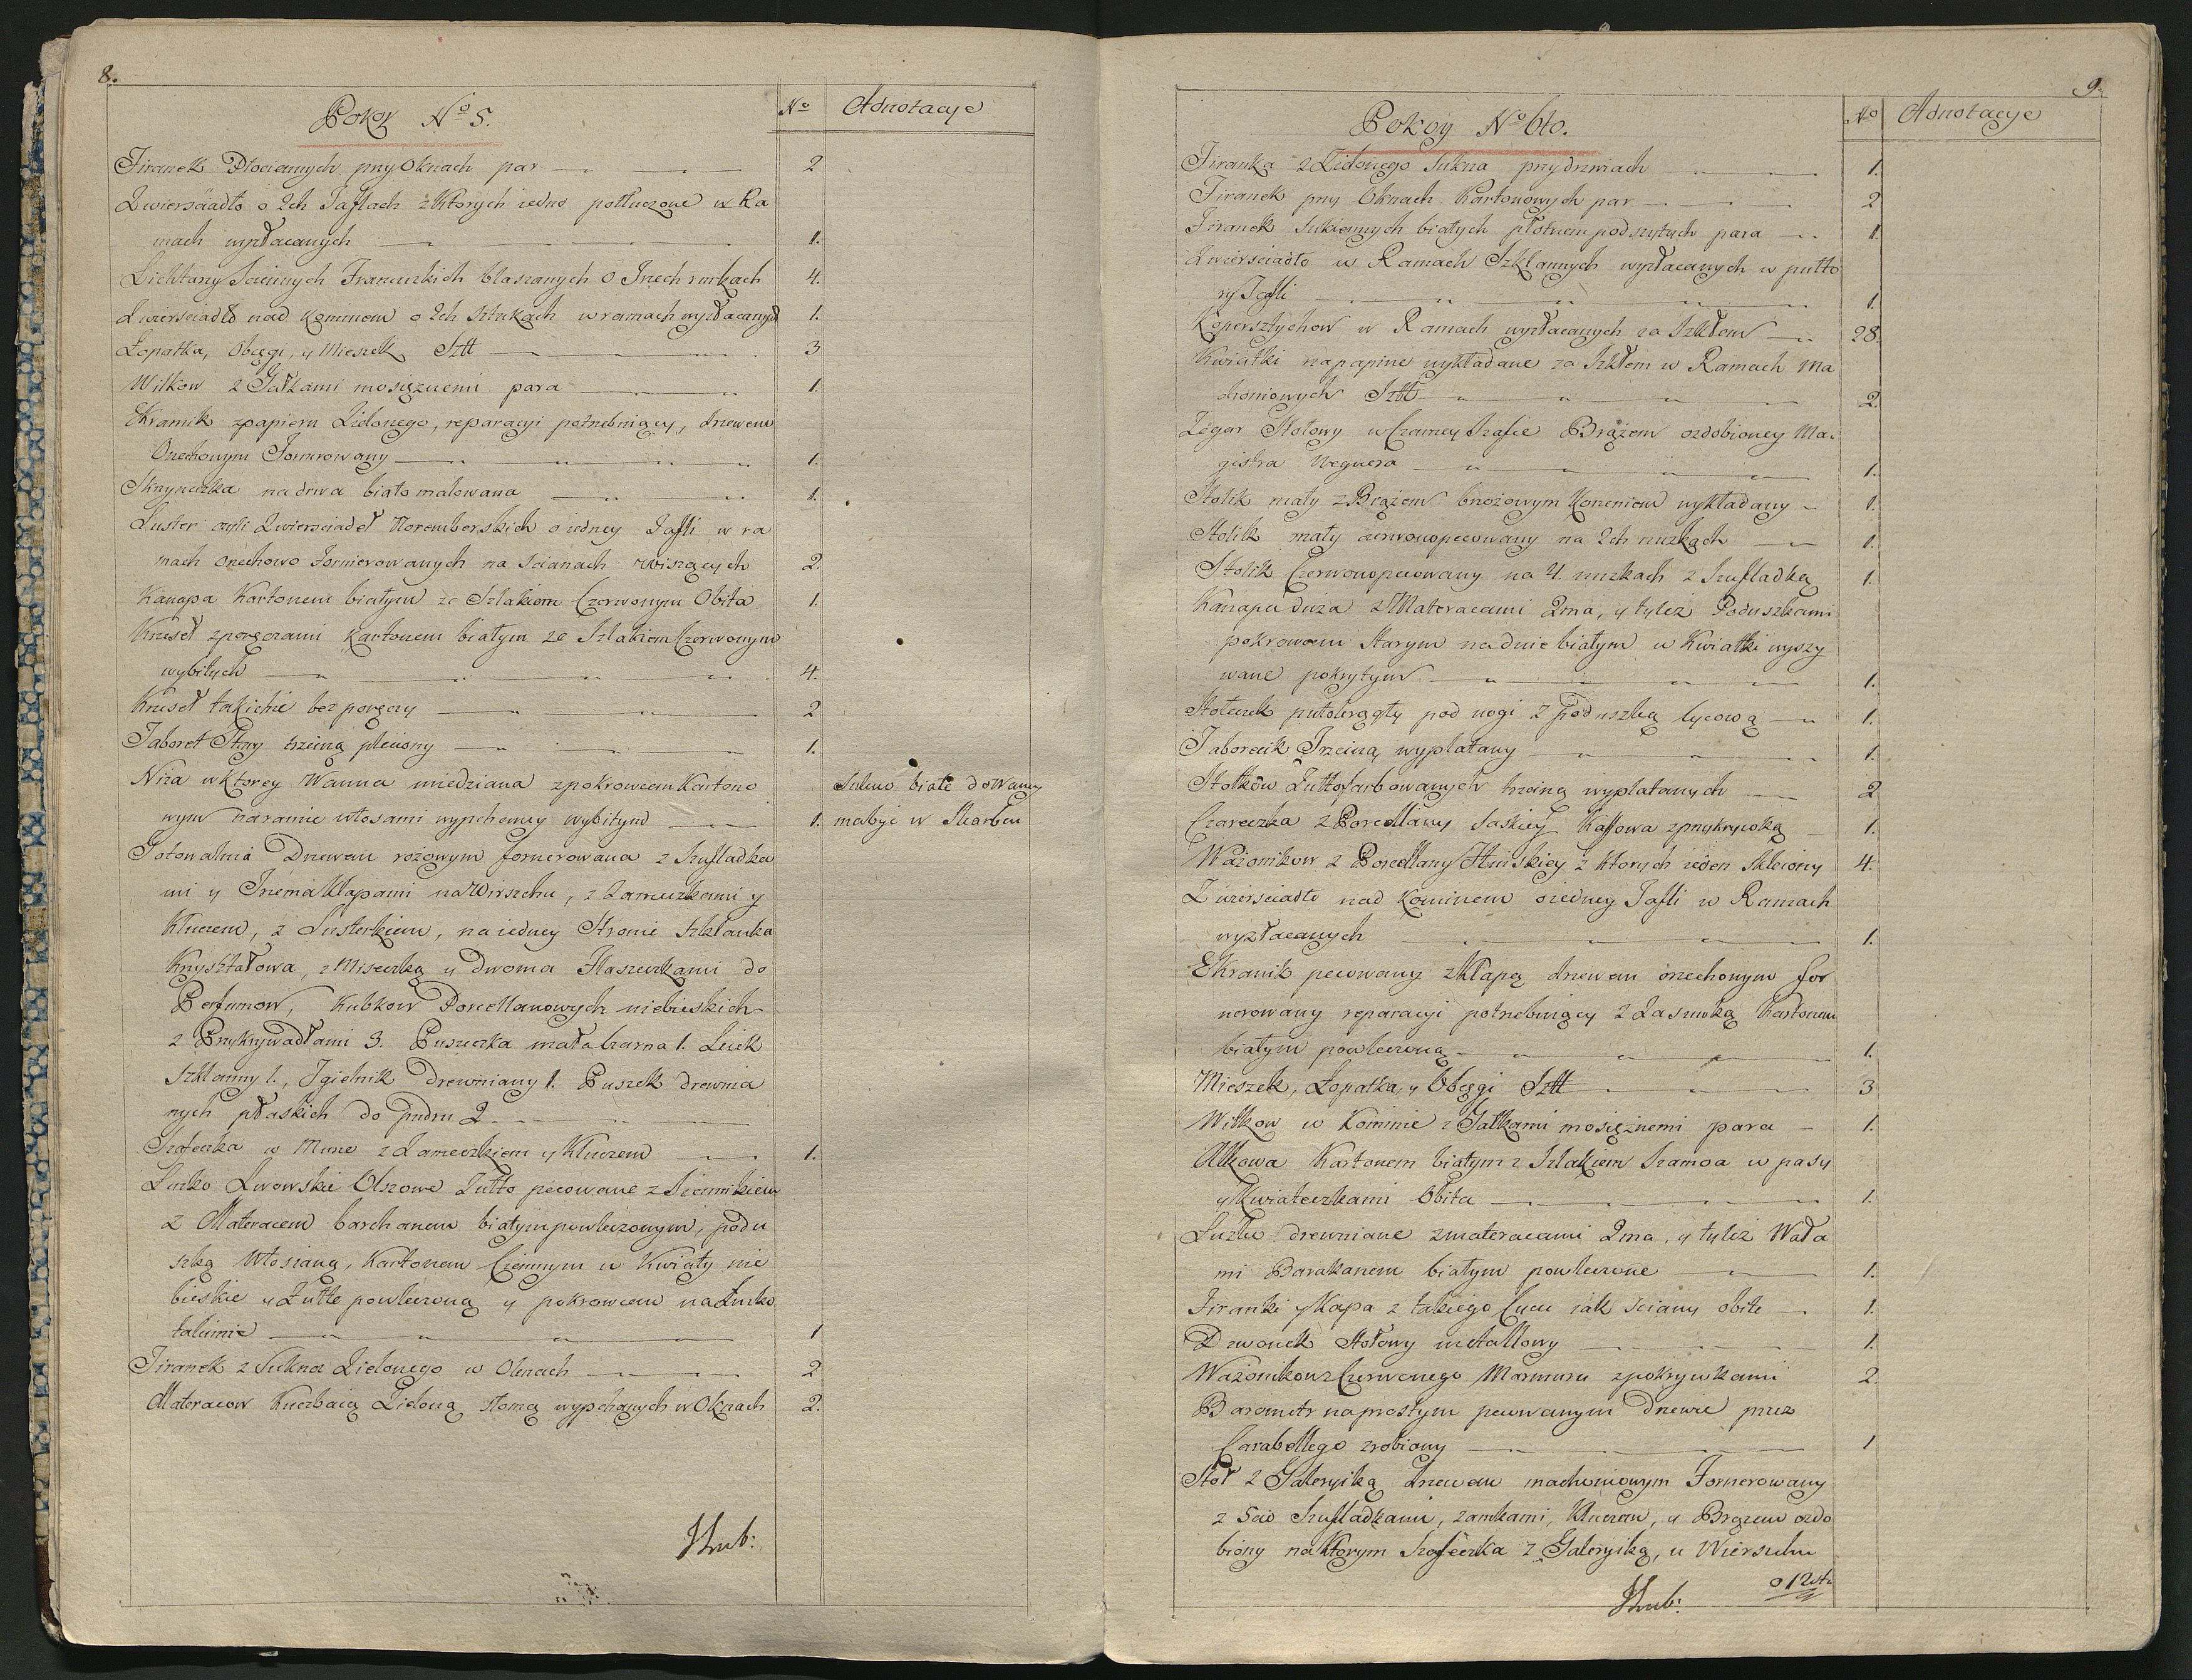 8.
Pokoy Nº 5.
Nº
Adnotacye
Firanek Płociennych przy Oknach par 2
Zwierciadło o 2ch Taflach z ktorych iedno potłuczone w Ra
mach wyzłacanych 1.
Lichtarzy Sciennych Francuzkich blaszanych o Trzech rurkach 4.
Zwierciadło nad kominem o 2ch Sztukach w ramach wyzłacanych 1.
Łopatka, Obcęgi, y Mieszek Sztt 3
Wilkow z Gałkami mosięznemi para 1.
Ekranik z papieru Zielonego, reparacyi potrzebuiący, drzewem
Orzechowym Fornerowany 1.
Skrzyneczka na drwa biało malowana 1.
Luster czyli Zwierciadeł Noremberskich o iedney Tafli w ra
mach orzechowo fornierowanych na Scianach wiszących 2.
Kanapa Kartonem białym ze Szlakiem Czerwonym Obita 1.
Krzeseł z poręczami kartonem białym ze Szlakiem Czerwonym
wybitych 4.
Krzeseł takichże bez poręczy 2
Taboret Stary trzciną pleciony 1.
Niza w ktorey Wanna miedziana z pokrowcem Kartono
wym na ramie włosami wypchaney wybitym 1.
Sukno białe do Wanny
ma byc w Skarbcu
Gotowalnia Drzewem rożowym fornerowana z Szufladka
mi y Trzema Klapami na Wirszchu, z Zameczkami y
Kluczem, z Lusterkiem, na iedney Stronie Szklanka
Kryształowa, z Miseczką y dwoma Flaszeczkami do
Perfumow, Kubkow Porcellanowych niebieskich
z Przykrywadłami 3. Puszeczka mała czarna 1. Leiek
Szklanny 1., Igielnik drewniany 1. Puszek drewnia
nych płaskich do pudru 2
Szafeczka w Murze z Zameczkiem y Kluczem 1.
Łuzko Lwowskie Olszowe Zułto pecowane z Siennikiem
z Materacem barchanem białym powleczonym, podu
szką Włosianą, Kartonem Ciemnym w Kwiaty nie
bieskie y Zułte powleczoną y pokrowcem na Łuzko
takimże 1
Firanek z Sukna Zielonego w Oknach 2
Materacow Kuczbaią Zieloną słomą wypchanych w Oknach 2.
9.
Pokoy Nº 6to.
Nº
Adnotacye
Firanka z Zielonego Sukna przy drzwiach 1.
Firanek przy Oknach Kartonowych par 2
Firanek Sukiennych białych płotnem podszytych para 1.
Zwierściadło w Ramach Szklannych wyzłacanych w pułto
ry Tafli 1.
Kopersztychow w Ramach wyzłacanych za Szkłem 28.
Kwiatki na papirze wykładane za Szkłem w Ramach Ma
choniowych Sztt 2.
Zegar Stołowy w Czarney Szafie Brązem ozdobioney Ma
gistra Wegnera 1.
Stolik mały z Brązem brzozowym Korzeniem wykładany 1.
Stolik mały czerwono pecowany na 2ch nuzkach 1.
Stolik Czerwono pecowany na 4. nuzkach z Szufladką 1.
Kanapa duża z Materacami 2ma, y tyleż Poduszkami
pokrowcem Starym na dnie białym w Kwiatki wyszy
wane pokrytym 1.
Stołeczek pułokrągły pod nogi z Poduszką cycową 1.
Taborecik Trzciną wyplatany 1.
Stołkow Zułto farbowanych trzciną wyplatanych 2
Czareczka z Porcellany Saskiey Kaffowa z przykrywką 1.
Ważonikow z Porcellany Hinskiey z ktorych ieden Skleiony 4.
Zwierściadło nad Kominem o iedney Tafli w Ramach
wyzłacanych 1.
Ekranik pecowany z Klapą drzewem orzechowym for
nerowany reparacyi potrzebuiący z Zasuwką Kartonem
białym powleczoną 1.
Mieszek, Łopatka, y Obcęgi Sztt 3
Wilkow w Kominie z Gałkami mosiężnemi para 1.
Alkowa Kartonem białym z Szlakiem Szamoa w pasy
y Kwiateczkami Obita 1.
Łuzko drewniane z materacami 2ma, y tyleż Wała
mi Barakanem białym powleczone 1.
Firanki y Kapa z takiego Cycu iak Sciany obite 1.
Dzwonek Stołowy metallowy 1.
Ważonikow z Czerwonego Marmuru z pokrywkami 2.
Barometr na prostym pecowanym drzewie przez
Carabellego zrobiony 1
Stoł z Galeryiką drzewem machoniowym Fornerowany
z 5cio Szufladkami, zamkami, Kluczem, y Brązem ozdo
biony na ktorym Szafeczka z Galeryiką, u Wierszchu
o 12stu